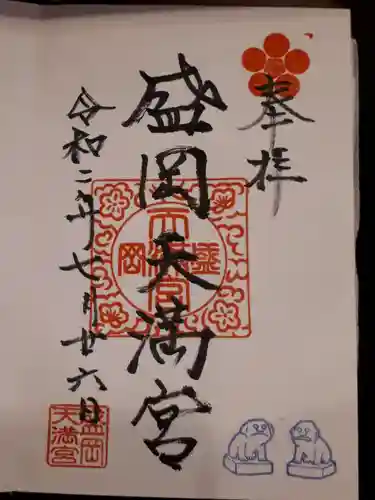 奉拝
盛岡天満宮
令和二年七月廿六日
盛岡
天満宮
盛岡
天満宮